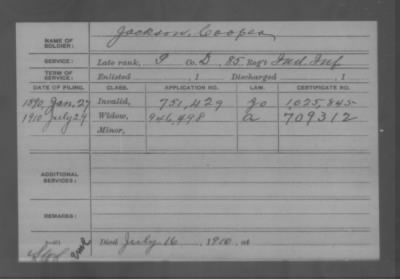 NAME OF SOLDIER: Jackson, Cooper
SERVICE: Late rank, P Co. D, 85 Reg't Ind. Inf
TERM OF SERVICE: Enlisted , 1 Discharged , 1
DATE OF FILING. CLASS. APPLICATION NO. LAW. CERTIFICATE NO.
1890, Jan. 27 Invalid, 751,429 1025,845
1910 July 29 Widow, 946,498 a 709312
Minor,
ADDITIONAL SERVICES:
REMARKS:
Died July 16, 1910, at